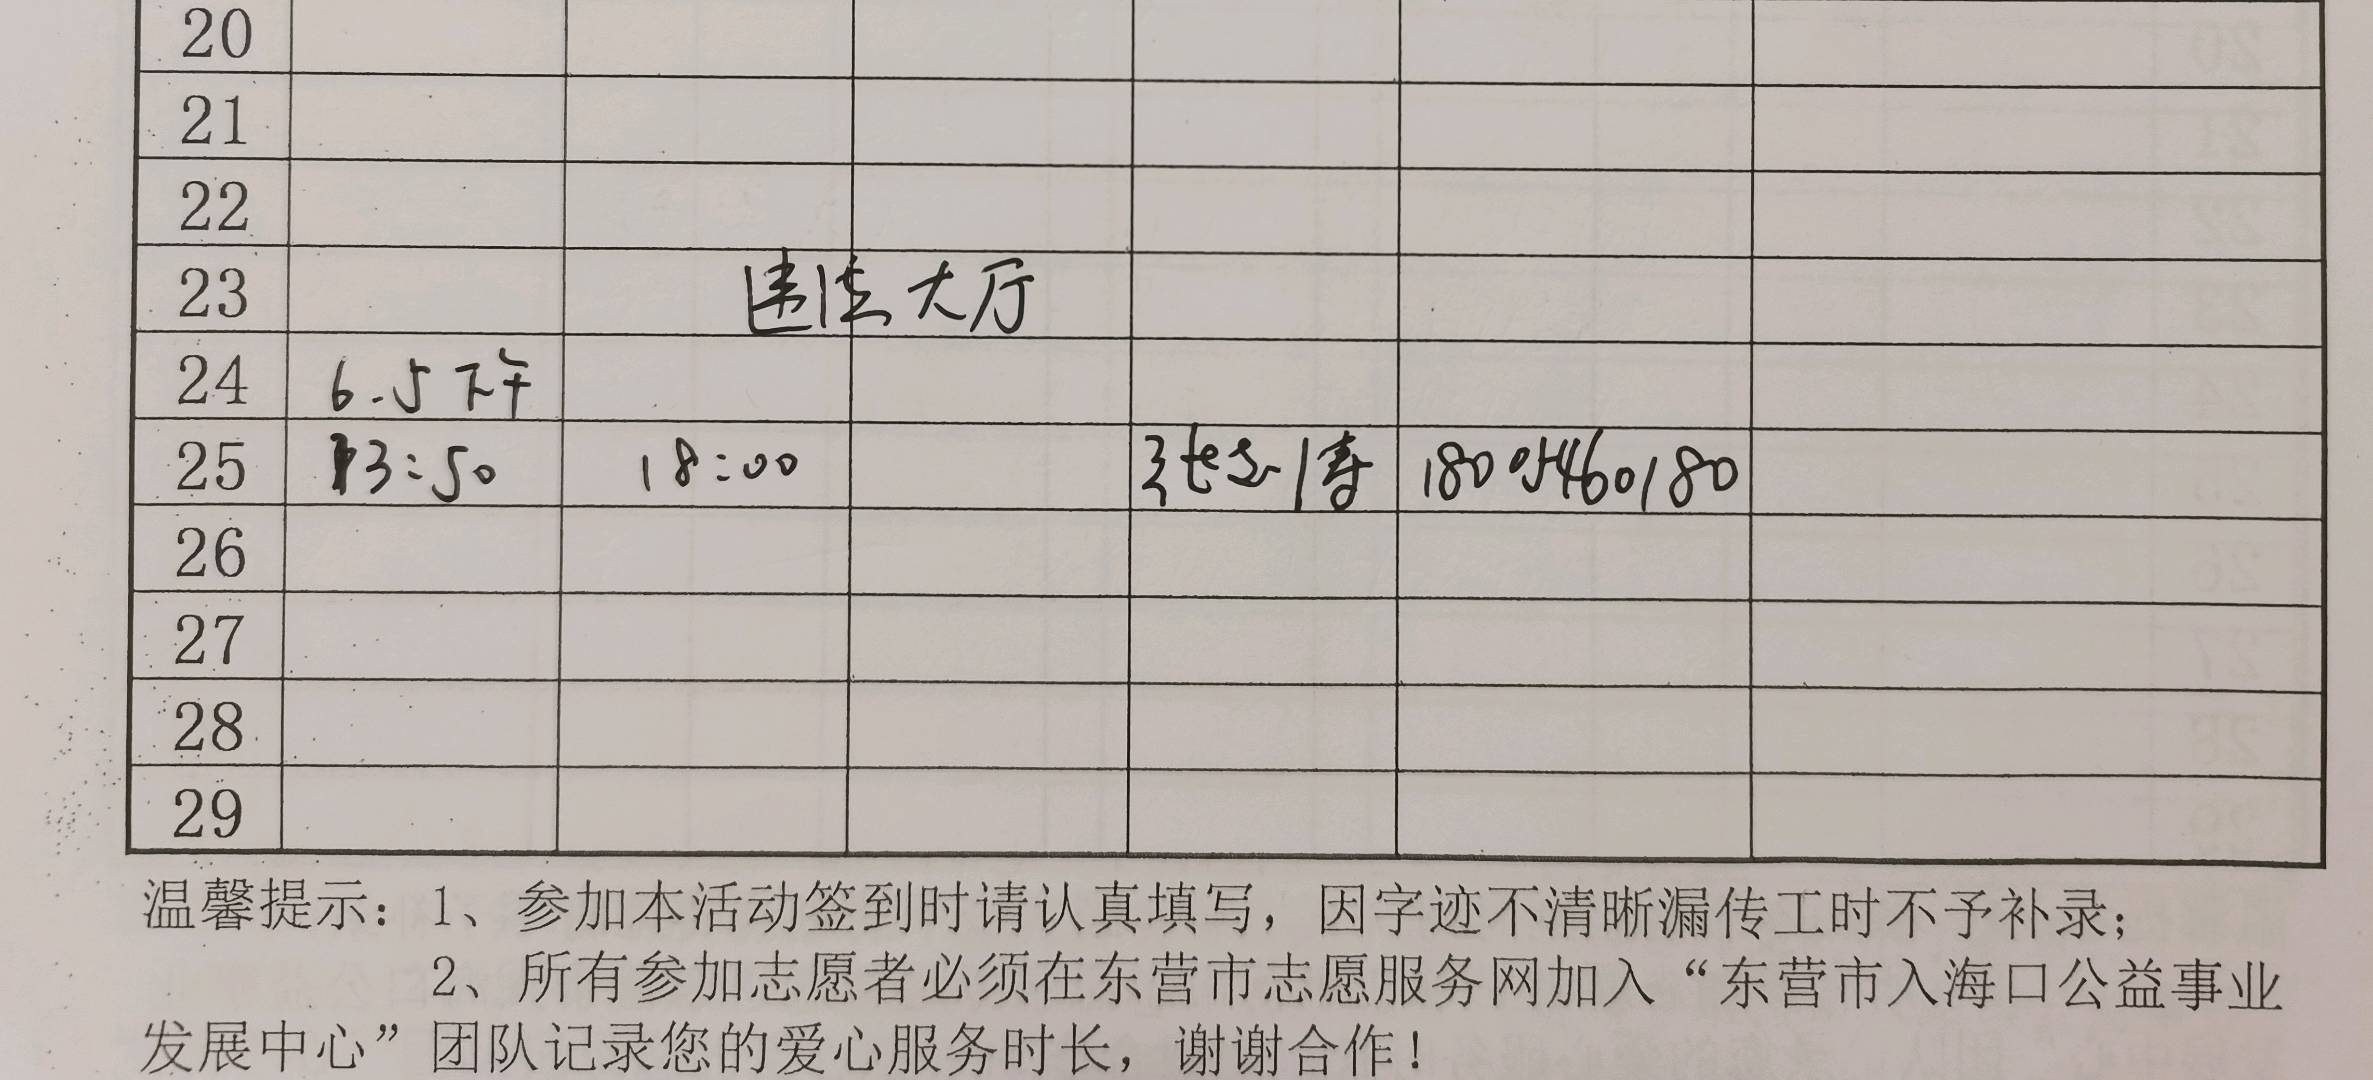 20
21
22
23 违法大厅
24 6.5下午
25 13:50 18:00 张志涛 18005460180
26
27
28
29
温馨提示：1、参加本活动签到时请认真填写，因字迹不清晰漏传工时不予补录；
2、所有参加志愿者必须在东营市志愿服务网加入“东营市入海口公益事业
发展中心”团队记录您的爱心服务时长，谢谢合作！